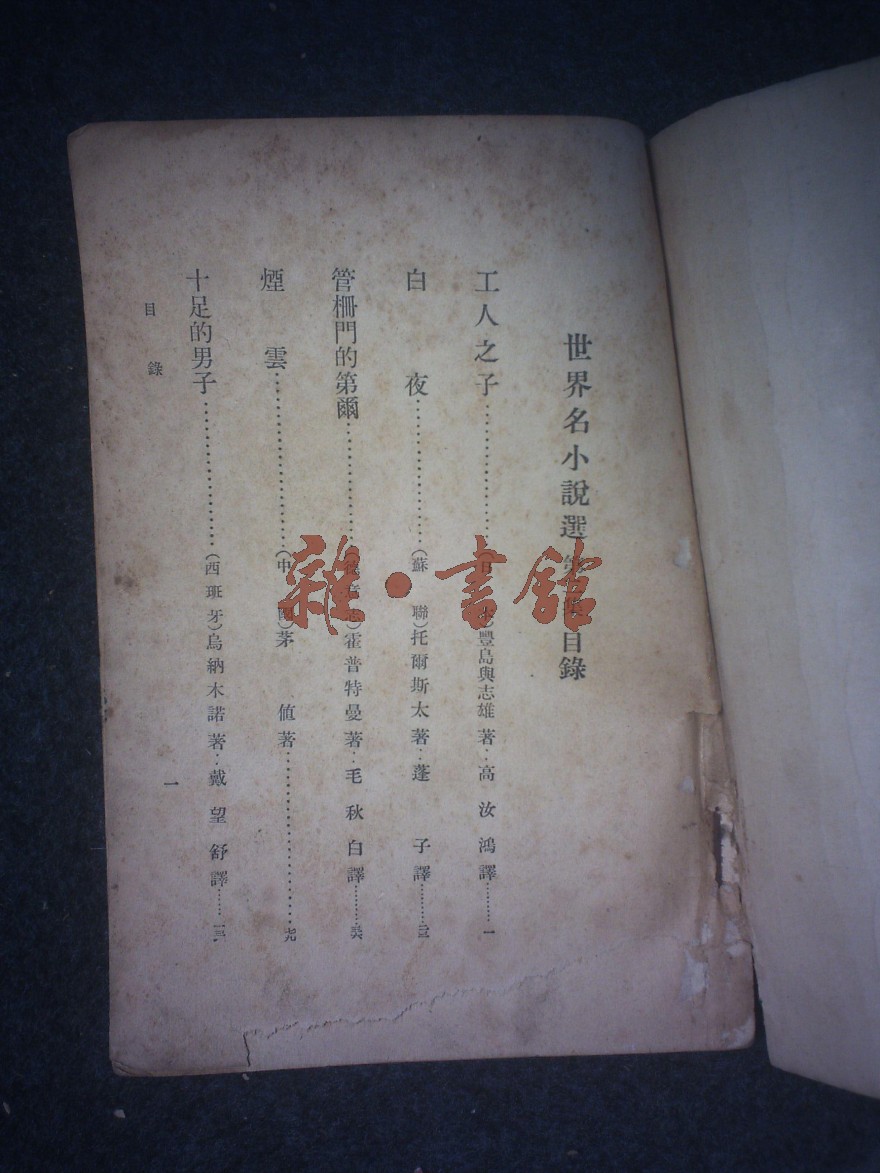 世界名小說選第 集目錄
工人之子………………(日本)豐島與志雄著：高汝鴻譯………一
白夜………………(蘇聯)托爾斯太著：蓬子譯………
管柵門的第爾………………(德意志)霍普特曼著：毛秋白譯………
煙雲………………(中國)茅値著………………
十足的男子………………(西班牙)烏納木諾著：戴望舒譯……
目錄
一
雜·書館